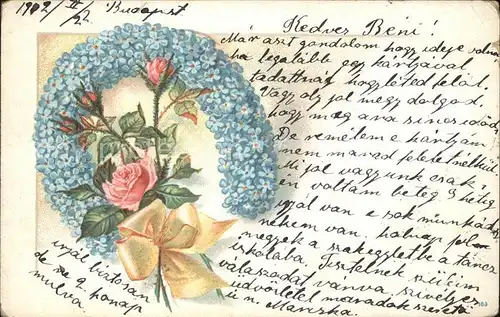 1902 II/22. Budapest
Kedves Béni!
Már aszt gondolom hogy ideje volna
ha legalább egy kártyával
tudattnád hogyléted felől.
Vagy oly jol megy dolgod
hogy még arra sincs időd
De remélem e kártyám
nem marad feleletnélkül
Mi jol vagyunk csak
én voltam beteg 3 hétig
ujjal van e sok munkád
nekem van. holnap jelen
megyek a szaleglettbe a tánc
iskolába. Tisztelnek szüleim
válaszodat várva. szivélyes
üdvözlettel maradok szerető
u n. Mariska.
irjál biztosan
de ne 2 hónap
mulva